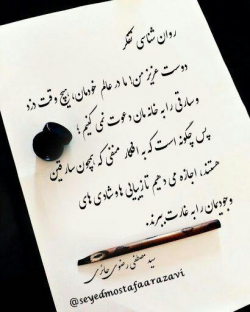 روان شناسی تفکر
دوست عزیز من! ما در عالم خودمان، هیچ وقت دزد
و سارقی را به خانه مان دعوت نمی کنیم؛
پس چگونه است که به افکار منفی که همچون سارقین
هستند، اجازه می دهیم تا زیبایی ها و شادی های
وجودمان را به غارت ببرند.
سید مصطفی رضوی حائری
@seyedmostafaarazavi